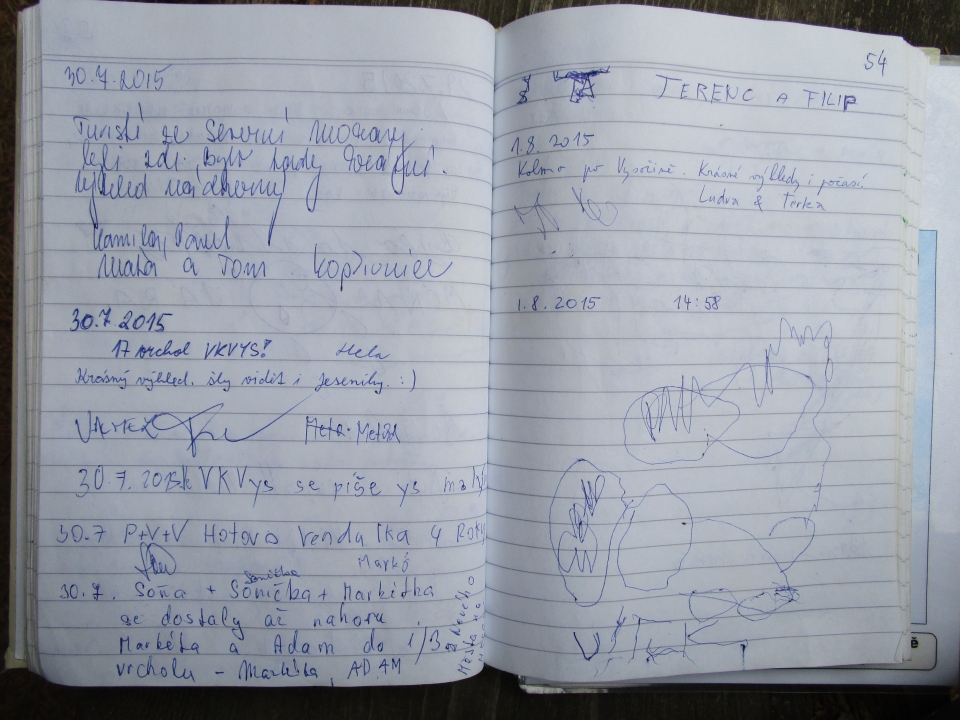 30.7.2015
Turisté ze Severní Moravy
byli zde. Bylo hezky
výhled nádherný
Kamila, Pavel
Maťa a Tom
30.7.2015
17 vrchol VKVYS! Hela
Krásný výhled. šly vidět i Jeseníky. :)
Metod
30.7.2015 VKVys se píše ys
30.7 P+V+V Hotovo Vendulka 4 Roky
Marké
Sonička
30.7. Soňa + Sonička + Markétka
se dostaly až nahoru.
Markéta a Adam do 1/3
vrcholu - Markétka, ADAM
54
TERENC A FILIP
1.8.2015
Kolmo po Vysočině. Krásné výhledy i počasí
Ludva & Terka
1.8.2015 14:58